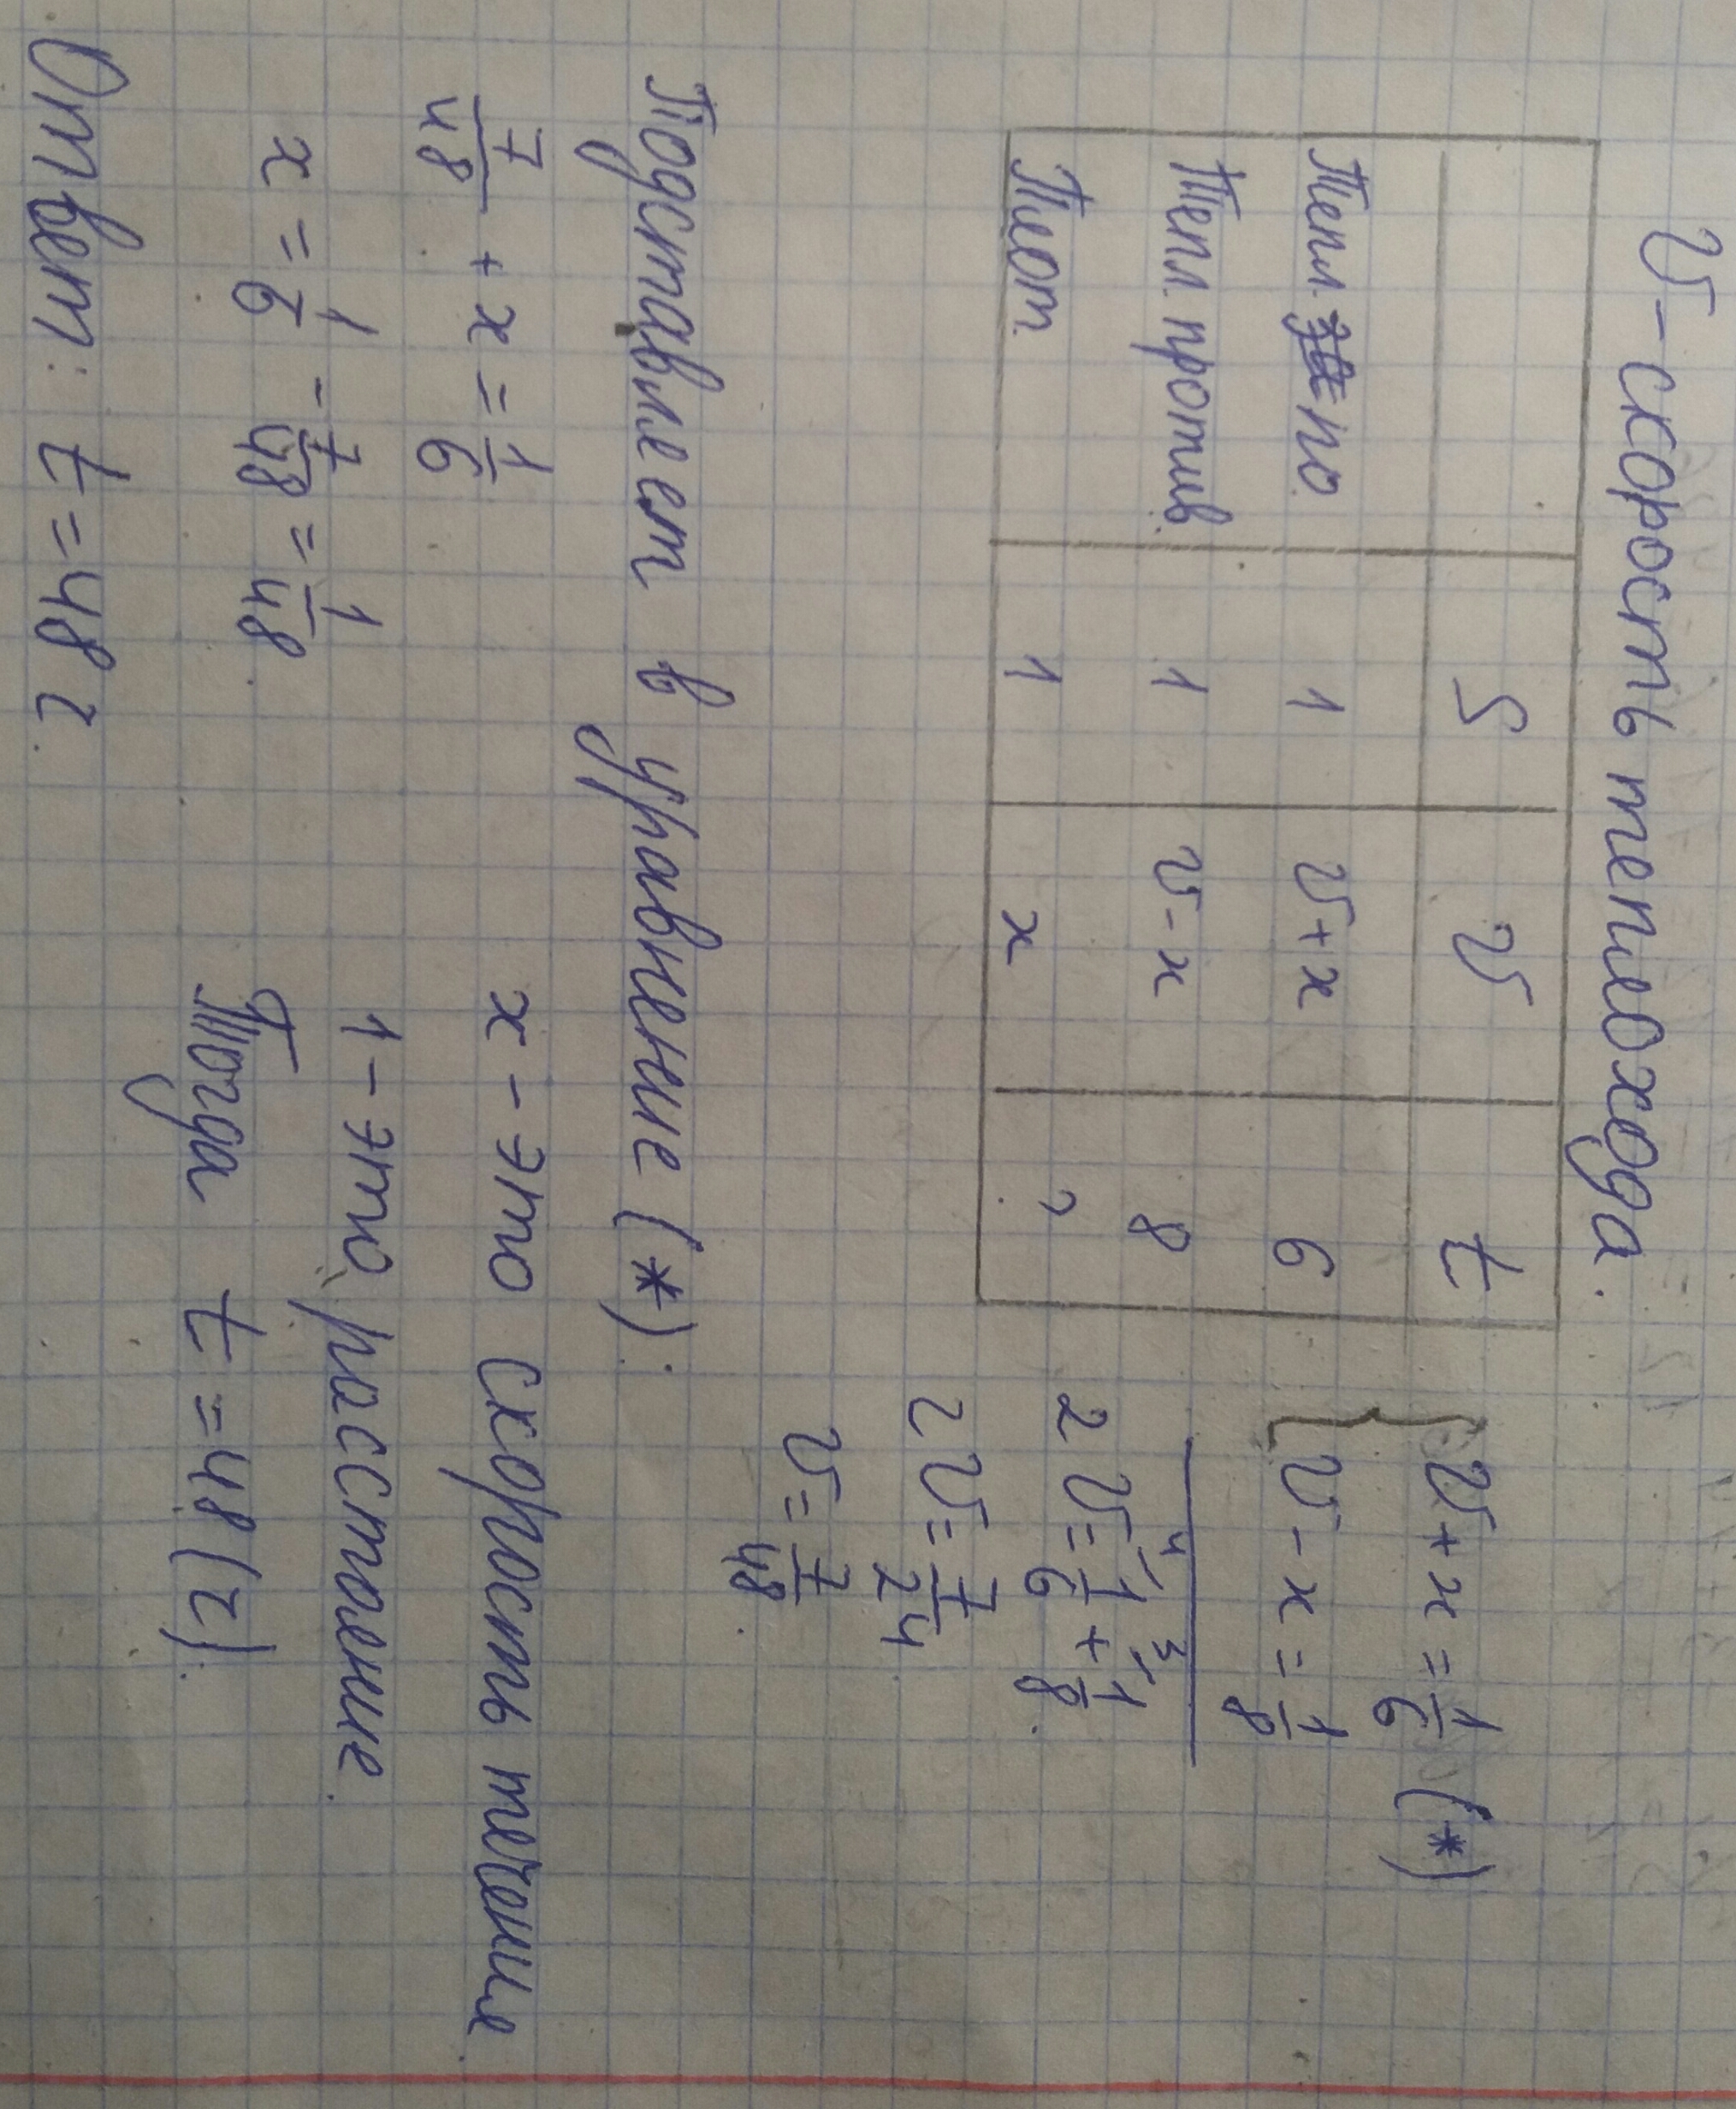 V - скорость теплохода.
S V t
Тепл. по 1 V+x 6
Тепл. против 1 V-x 8
Плот 1 x ?
V + x = 1/6 (*)
V - x = 1/8
2V = 1/6 + 1/8
2V = 7/24
V = 7/48
Подставляем в уравнение (*):
7/48 + x = 1/6
x = 1/6 - 7/48 = 1/48
x - это скорость течение
1 - это расстояние
Тогда t = 48 (ч).
Ответ: t = 48 ч.